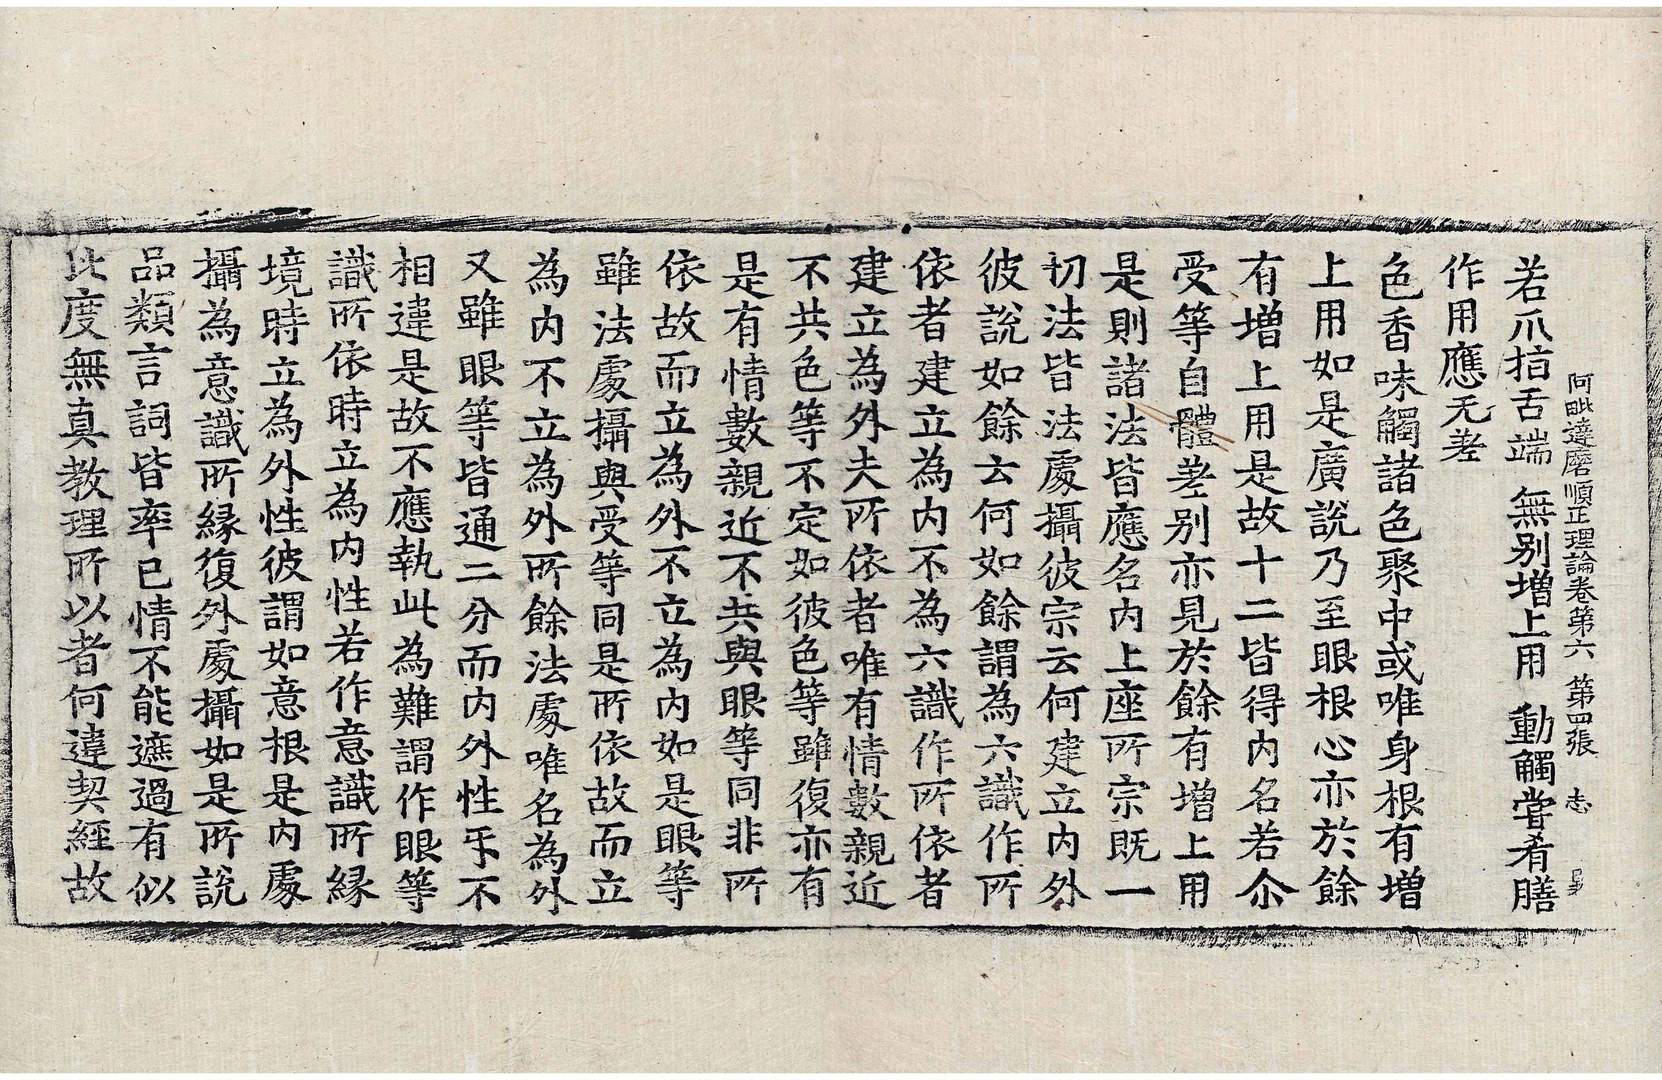 阿毗達磨順正理論卷第六 第四張 志
若爪指舌端 無别增上用 動觸甞肴膳
作用應无差
色香味觸諸色聚中或唯身根有增
上用如是廣說乃至眼根心亦於餘
有增上用是故十二皆得内名若尒
受等自體差别亦見於餘有增上用
是則諸法皆應名内上座所宗既一
切法皆法處攝彼宗云何建立内外
彼說如餘云何如餘謂為六識作所
依者建立為内不為六識作所依者
建立為外夫所依者唯有情數親近
不共色等不定如彼色等雖復亦有
是有情數親近不共與眼等同非所
依故而立為外不立為内如是眼等
雖法處攝與受等同是所依故而立
為内不立為外所餘法處唯名為外
又雖眼等皆通二分而内外性乎不
相違是故不應執此為難謂作眼等
識所依時立為内性若作意識所緣
境時立為外性彼謂如意根是内處
攝為意識所緣復外處攝如是所說
品類言詞皆率已情不能遮過有似
比度無真教理所以者何違契經故